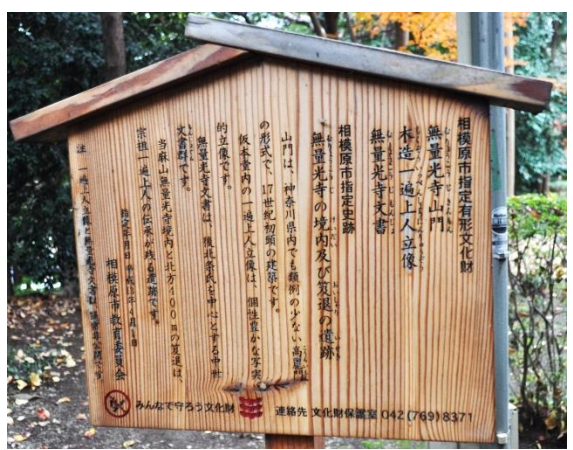 相模原市指定有形文化財
無量光寺山門
木造一遍上人立像
無量光寺文書
相模原市指定史跡
無量光寺の境内及び笈退の遺跡
山門は、神奈川県内でも類例の少ない高麗門
の形式で、17世紀初頭の建築です。
仮本堂内の一遍上人立像は、個性豊かな写実
的立像です。
無量光寺文書は、後北条氏を中心とする中世
文書群です。
当麻山無量光寺境内と北方400mの笈退は、
宗祖一遍上人の伝承が残る遺跡です。
指定年月日 平成13年4月1日
相模原市教育委員会
注 一遍上人立像と無量光寺文書は、通常非公開です。
みんなで守ろう文化財
連絡先 文化財保護室 042(769)8371